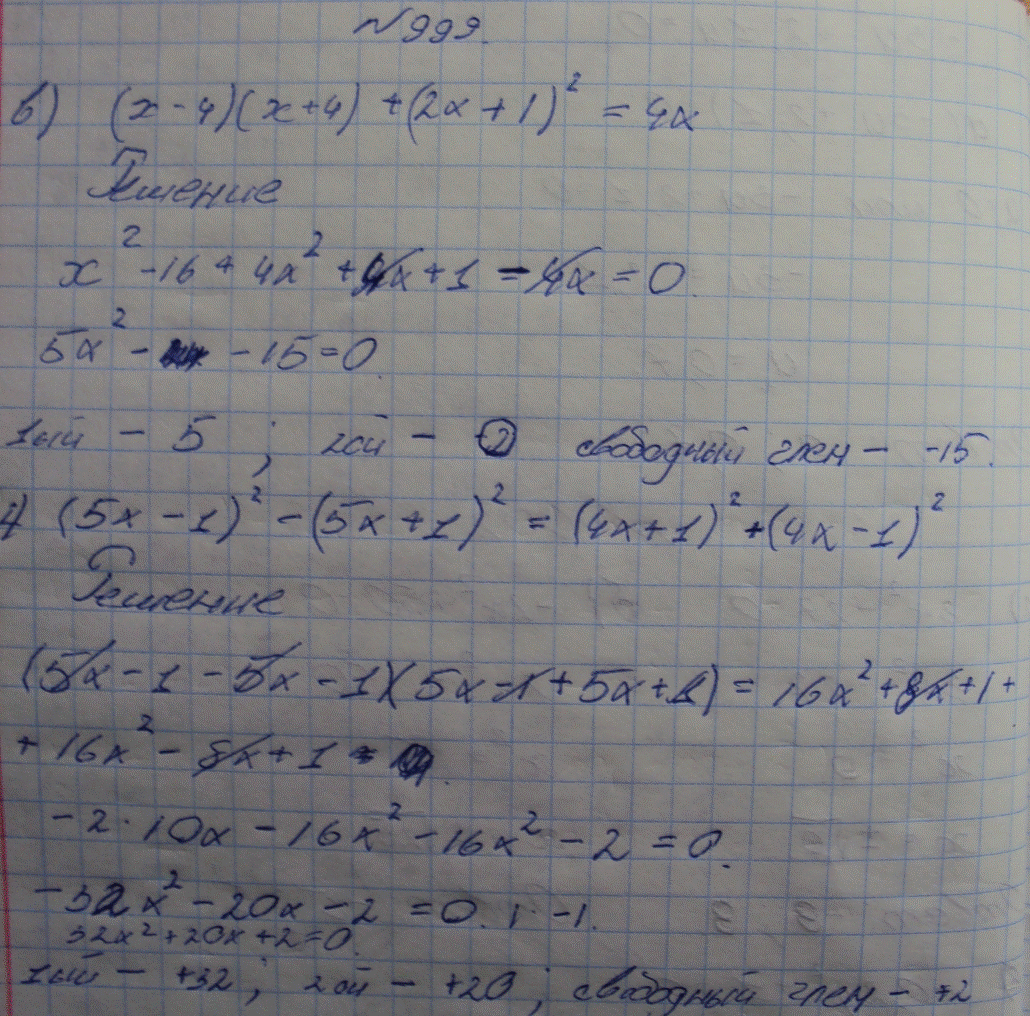 №999.
в) (x-4)(x+4) + (2x+1)² = 4x
Решение
x² - 16 + 4x² + 4x + 1 - 4x = 0.
5x² - - 15 = 0.
1ый - 5 ; 2ой - свободный член - -15.
(5x-1)² - (5x+1)² = (4x+1)² + (4x-1)²
Решение
(5x - 1 - 5x - 1)(5x - 1 + 5x + 1) = 16x² + 8x + 1 +
+ 16x² - 8x + 1
-2·10x - 16x² - 16x² - 2 = 0.
-32x² - 20x - 2 = 0. | · -1.
32x² + 20x + 2 = 0.
1ый - +32 ; 2ой - +20 ; свободный член - +2